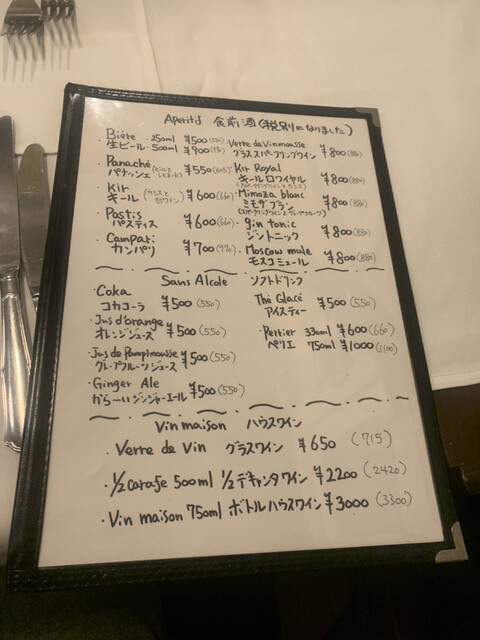 Aperitif 食前酒 (税別になりました)
・Bière ・250ml ¥500 (550)
生ビール ・500ml ¥900
・Panaché ¥550 (605)
パナッシェ
・Kir
キール ¥600 (660)
・Pastis ¥600 (660)
パスティス
・Campari ¥700 (770)
カンパリ
・Verre de Vin mousse
グラススパークリングワイン ¥800 (880)
・Kir Royal
キールロワイヤル ¥800 (880)
・Mimoza blanc
ミモザブラン ¥800 (880)
・gin tonic
ジントニック ¥800 (880)
・Moscow mule
モスコミュール ¥800 (880)
Sans Alcole ソフトドリンク
・Coka
コカコーラ ¥500 (550)
・Jus d'orange
オレンジジュース ¥500 (550)
・Jus de Pamplmousse
グレープフルーツジュース ¥500 (550)
・Ginger Ale
からーいジンジャーエール ¥500 (550)
Thé Glacé
アイスティー ¥500 (550)
・Perrier 330ml ¥600 (660)
ペリエ 750ml ¥1000 (1100)
Vin maison ハウスワイン
・Verre de Vin グラスワイン ¥650 (715)
・½ Carafe 500ml ½デキャンタワイン ¥2200 (2420)
・Vin maison 750ml ボトルハウスワイン ¥3000 (3300)